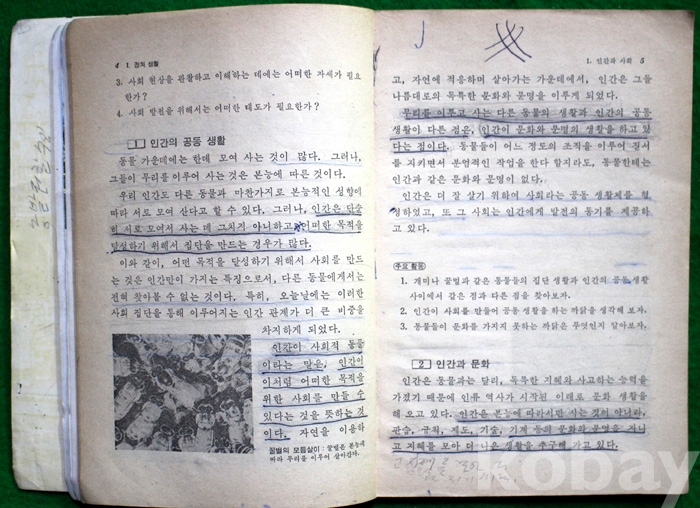 4 I. 검의 생활
3. 사회 현상을 관찰하고 이해하는 데에는 어떠한 자세가 필요
한가?
4. 사회 발전을 위해서는 어떠한 태도가 필요한가?
1 인간의 공동 생활
동물 가운데에는 한데 모여 사는 것이 많다. 그러나,
그들이 무리를 이루어 사는 것은 본능에 따른 것이다.
우리 인간도 다른 동물과 마찬가지로 본능적인 성향이
따라 서로 모여 산다고 할 수 있다. 그러나, 인간은 단순
히 서로 모여서 사는 데 그치지 아니하고, 어떠한 목적을
달성하기 위해서 집단을 만드는 경우가 많다.
이와 같이, 어떤 목적을 달성하기 위해서 사회를 만드
는 것은 인간만이 가지는 특징으로서, 다른 동물에게서는
전혀 찾아볼 수 없는 것이다. 특히, 오늘날에는 이러한
사회 집단을 통해 이루어지는 인간 관계가 더 큰 비중을
차지하게 되었다.
인간이 사회적 동물
이라는 말은, 인간이
이처럼 어떠한 목적을
위한 사회를 만들 수
있다는 것을 뜻하는 것
이다. 자연을 이용하
꿀벌의 모듬살이 : 꿀벌은 본능에
따라 무리를 이루어 살아간다.
1. 인간과 사회 5
고, 자연에 적응하며 살아가는 가운데에서, 인간은 그들
나름대로의 독특한 문화와 문명을 이루게 되었다.
무리를 이루고 사는 다른 동물의 생활과 인간의 공동
생활이 다른 점은, 인간이 문화와 문명의 생활을 하고 있
다는 점이다. 동물들이 어느 정도의 조직을 이루어 질서
를 지키면서 분업적인 작업을 한다 할지라도, 동물한테는
인간과 같은 문화와 문명이 없다.
인간은 더 잘 살기 위하여 사회라는 공동 생활체를 형
성하였고, 또 그 사회는 인간에게 발전의 동기를 제공하
고 있다.
주요 활동
1. 개미나 꿀벌과 같은 동물들의 집단 생활과 인간의 공동 생활
사이에서 같은 점과 다른 점을 찾아보자.
2. 인간이 사회를 만들어 공동 생활을 하는 까닭을 생각해 보자.
3. 동물들이 문화를 가지지 못하는 까닭은 무엇인지 말하여 보자.
2 인간과 문화
인간은 동물과는 달리, 독특한 지혜와 사고하는 능력을
가졌기 때문에 인류 역사가 시작된 이래로 문화 생활을
해 오고 있다. 인간은 본능에 따라서만 사는 것이 아니라,
관습, 규칙, 제도, 기술, 기계 등의 문화와 문명을 지니
고 지혜를 모아 더 나은 생활을 추구해 가고 있다.
kobay